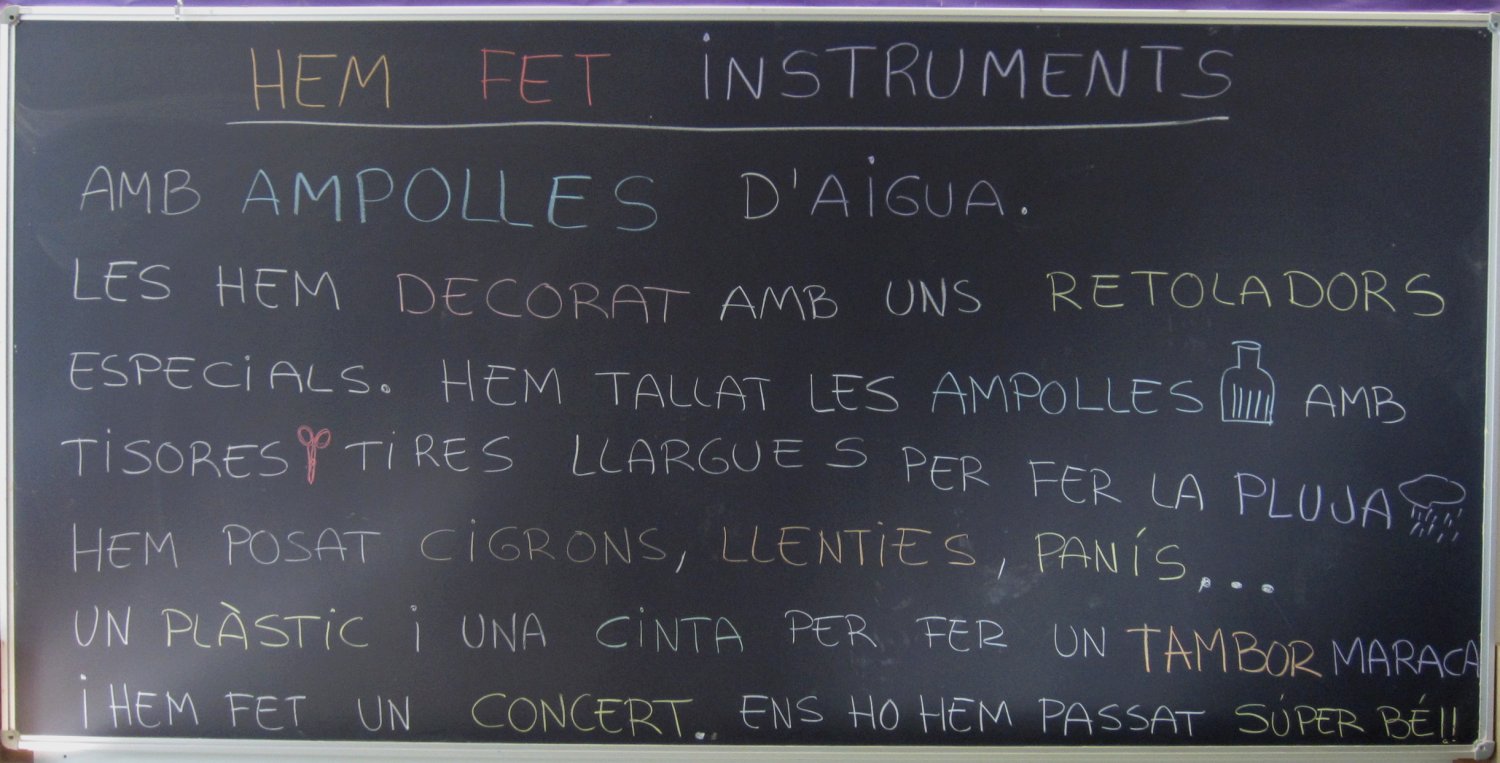 HEM FET INSTRUMENTS
AMB AMPOLLES D'AIGUA.
LES HEM DECORAT AMB UNS RETOLADORS
ESPECIALS. HEM TALLAT LES AMPOLLES AMB
TISORES TIRES LLARGUES PER FER LA PLUJA
HEM POSAT CIGRONS, LLENTIES, PANÍS,...
UN PLÀSTIC I UNA CINTA PER FER UN TAMBOR MARACA
I HEM FET UN CONCERT. ENS HO HEM PASSAT SÚPER BÉ!!